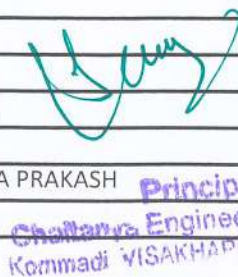 A PRAKASH
Princip
Chaitanya Enginee
Kommadi VISAKHAP